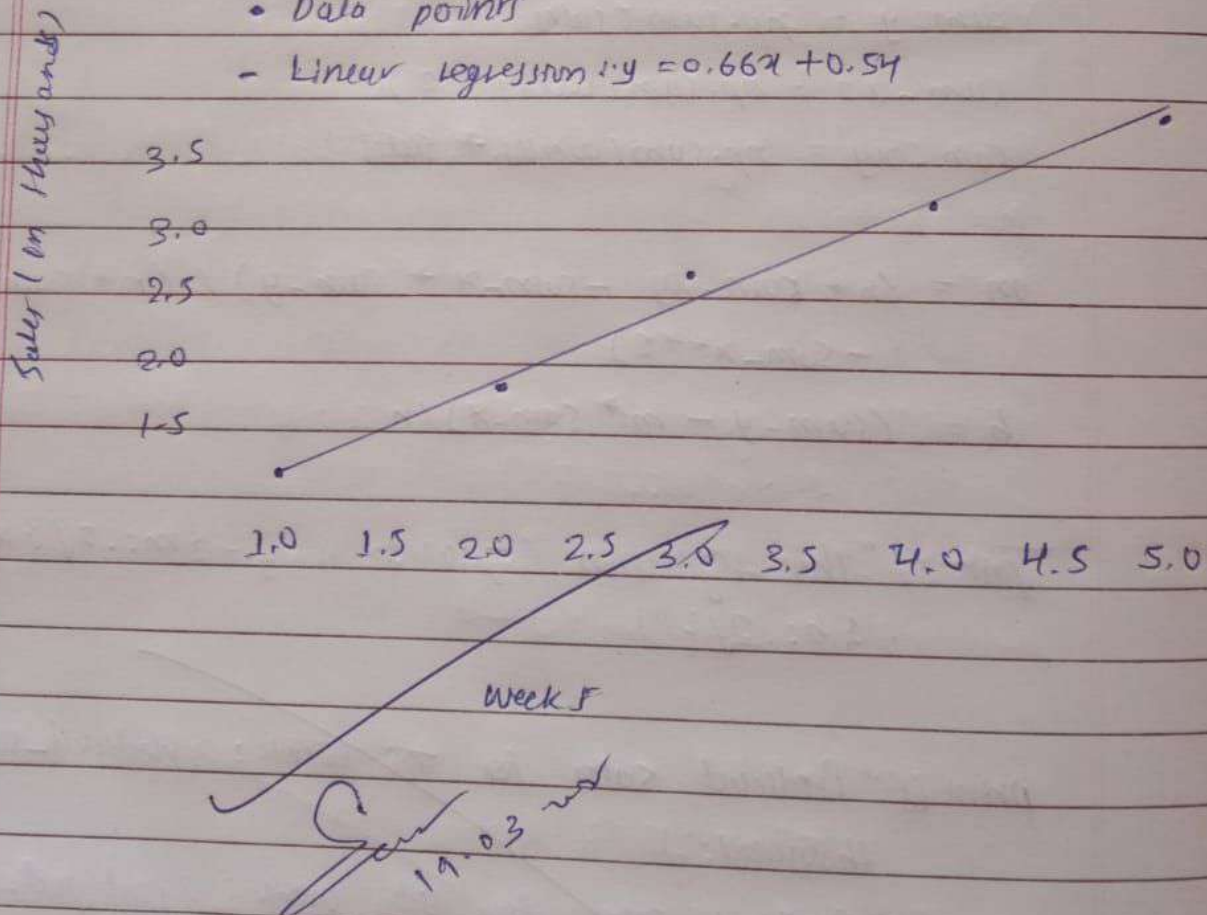 • Data points
- Linear regression : y = 0.66x + 0.54
Sales (in thousands)
3.5
3.0
2.5
2.0
1.5
1.0 1.5 2.0 2.5 3.0 3.5 4.0 4.5 5.0
Weeks
19.03